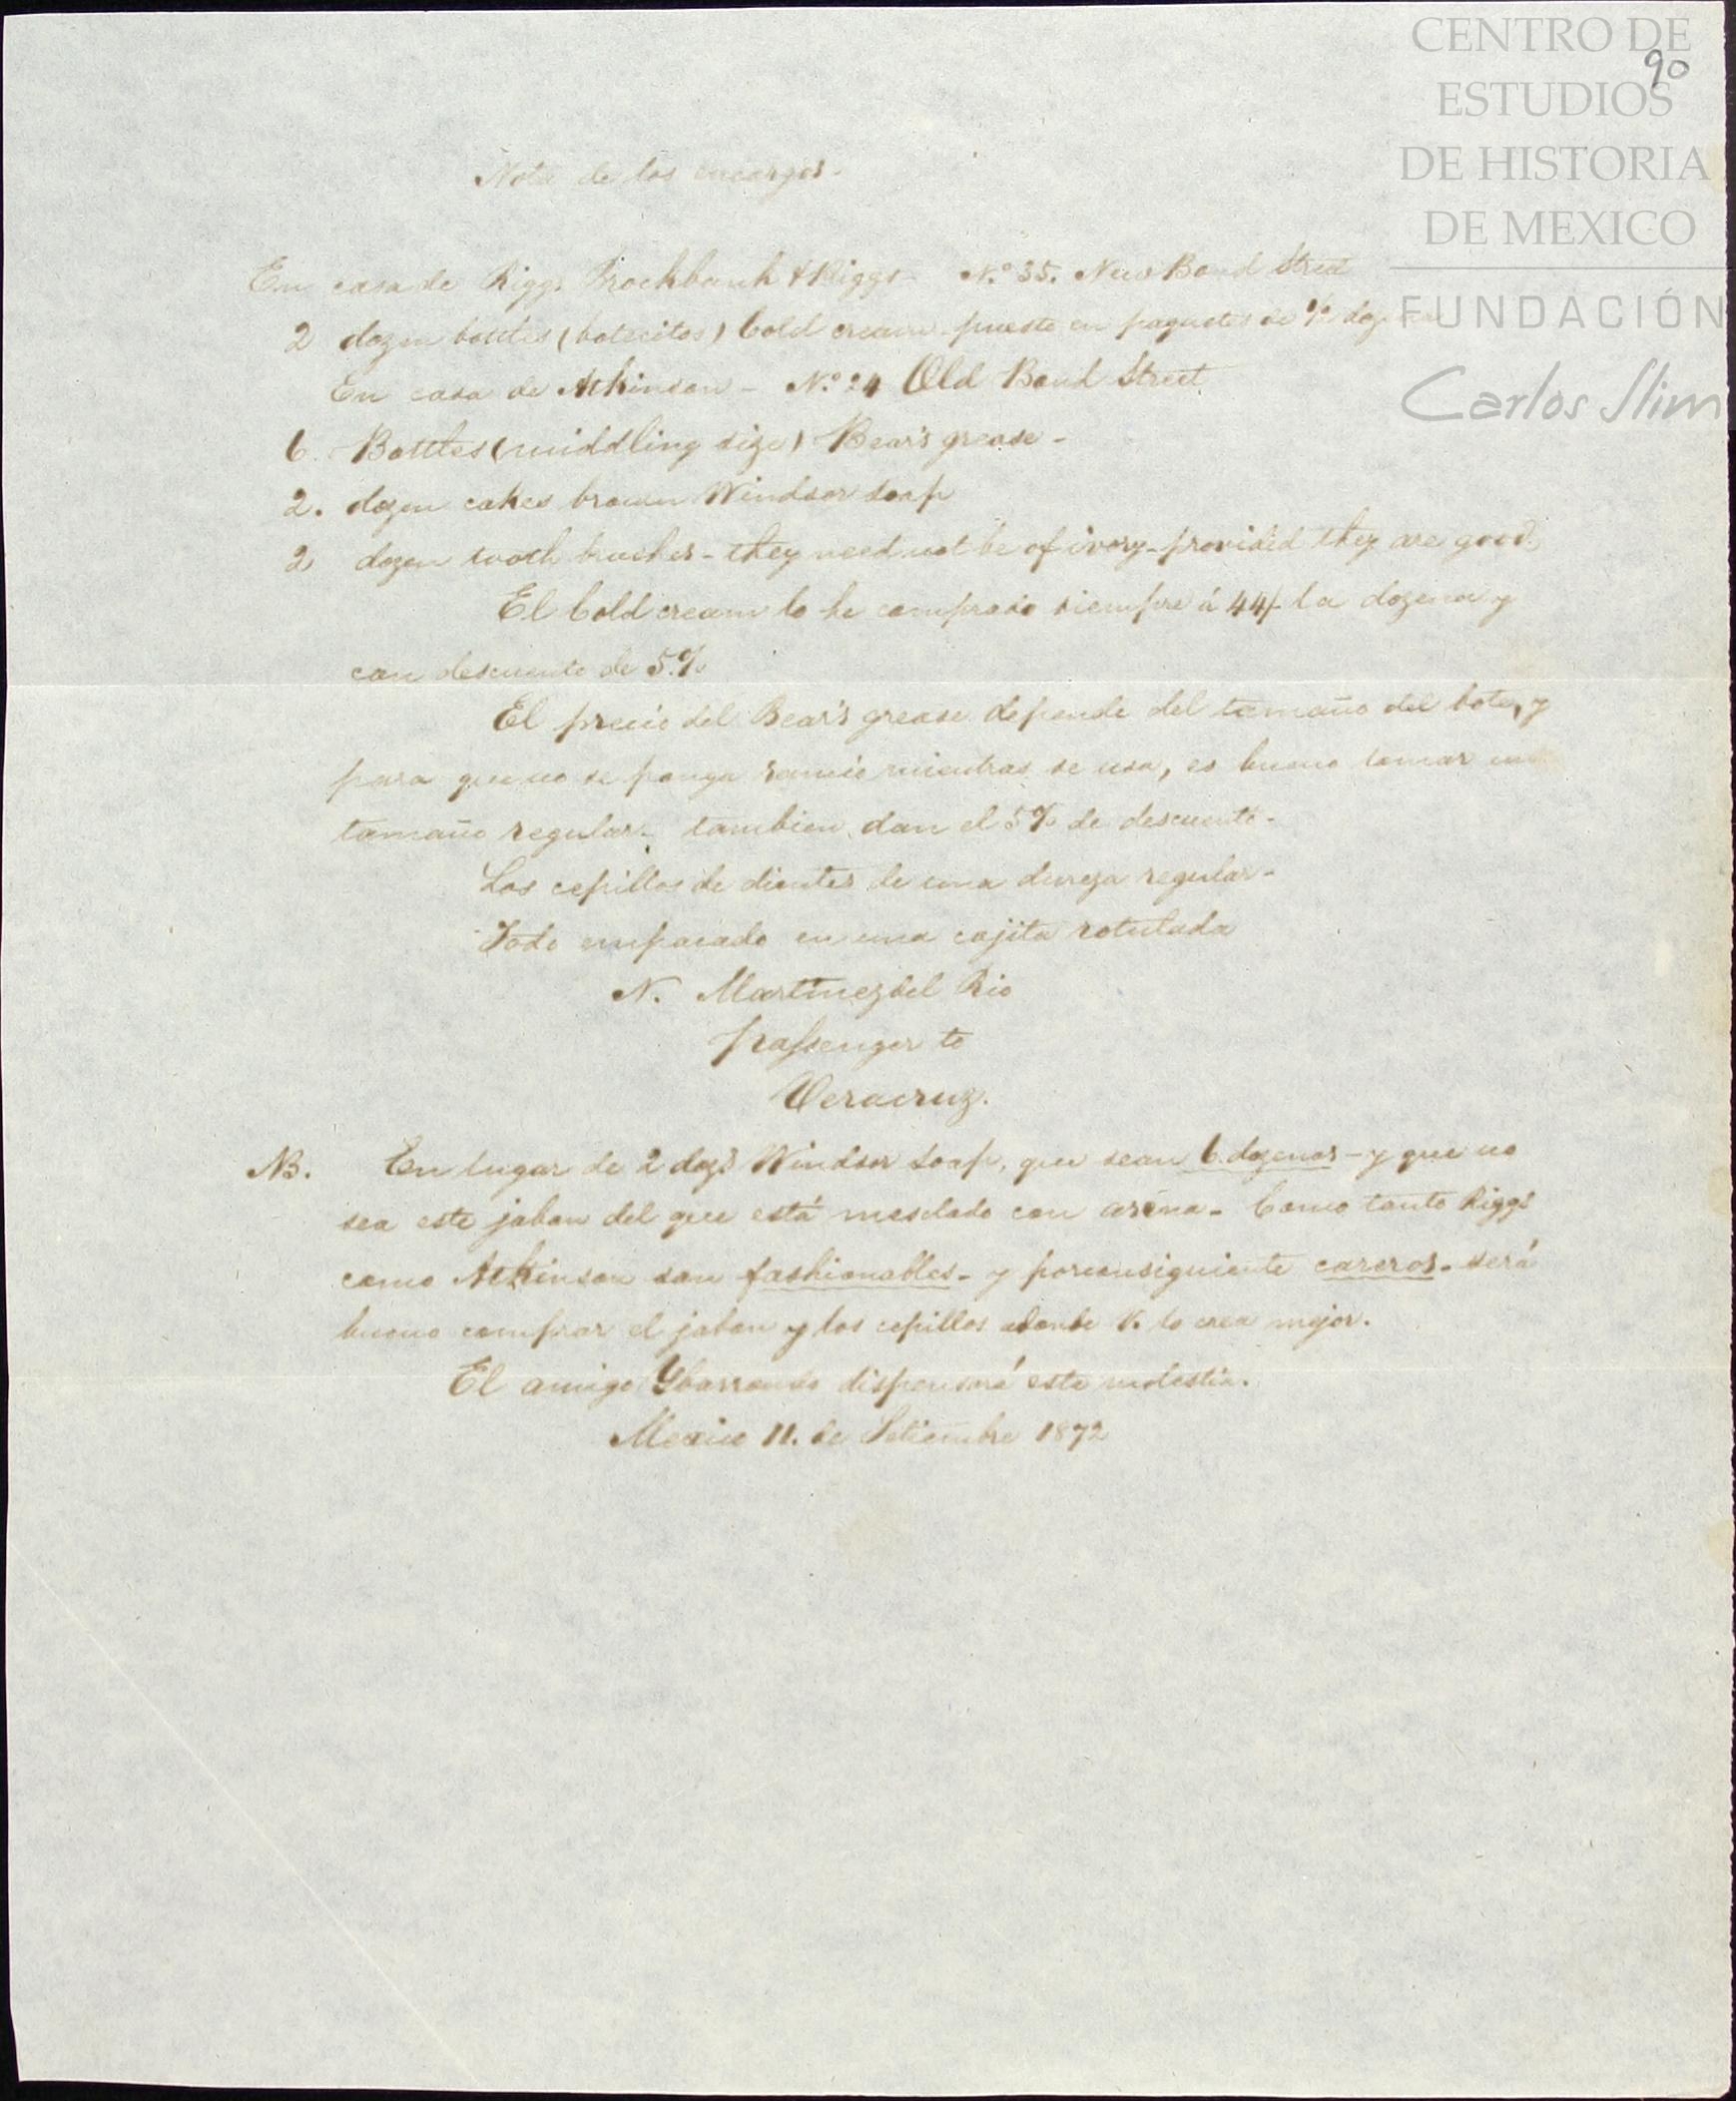 CENTRO DE
90
ESTUDIOS
DE HISTORIA
DE MEXICO
FUNDACIÓN
Carlos Slim
Nota de los encargos.
En casa de Riggs Brockbank & Riggs - N.º 35. New Bond Street
2 dozen bottles (botecitos) Cold cream - puesto en paquetes de ½
En casa de Atkinson - N.º 24 Old Bond Street
6. Bottles (middling size) Bear's grease -
2. dozen cakes brown Windsor soap
2 dozen tooth brushes - they need not be of ivory - provided they are good.
El Cold cream lo he comprado siempre á 44/- la dozena y
con descuento de 5%
El precio del Bear's grease depende del tamaño del bote, y
para que no se ponga rancio mientras se usa, es bueno tomar un
tamaño regular - tambien dan el 5% de descuento -
Los cepillos de dientes de una dureza regular -
Todo empacado en una cajita rotulada
N. Martinez del Rio
passenger to
Veracruz.
NB. En lugar de 2 dozs Windsor soap, que sean 6 dozenas - y que no
sea este jabon del que está mesclado con arena - Como tanto Riggs
como Atkinson son fashionables - y porconsiguiente careros - será
bueno comprar el jabon y los cepillos adonde V. lo crea mejor.
El amigo Ybarrondo dispensará esta molestia.
Mexico 11. de Setiembre 1872